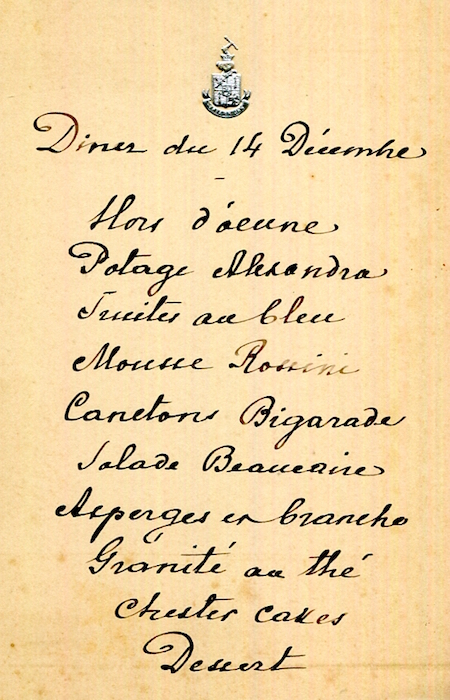 Diner du 14 Décembre
Hors d'oeuvre
Potage Alexandra
Truites au bleu
Mousse Rossini
Canetons Bigarade
Salade Beaucaire
Asperges en branche
Gránité au thé
Chester Cakes
Dessert